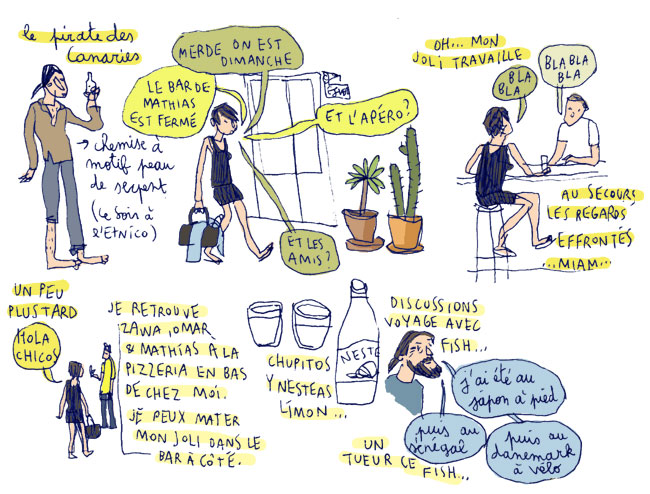 le pirate des
Canaries
→ chemise à
motif peau
de serpent
(ce soir à
l'Etnico)
MERDE ON EST
DIMANCHE
LE BAR DE
MATHIAS
EST FERMÉ
ET L'APÉRO?
ET LES
AMIS?
OH... MON
JOLI TRAVAILLE
BLA
BLA
BLA BLA
BLA
AU SECOURS
LES REGARDS
EFFRONTÉS
...MIAM...
UN PEU
PLUS TARD
HOLA
CHICOS
JE RETROUVE
ZAWA, OMAR
& MATHIAS À LA
PIZZERIA EN BAS
DE CHEZ MOI.
JE PEUX MATER
MON JOLI DANS LE
BAR À CÔTÉ.
CHUPITOS
Y NESTEAS
LÍMON...
NESTE
DISCUSSIONS
VOYAGE AVEC
FISH...
j'ai été au
japon à pied
puis au
sénégal
puis au
danemark
à vélo
UN
TUEUR CE FISH...